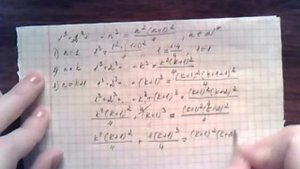 1³+2³+ ... n³ = n²(n+1)²/4, n∈N
1) n=1 1³ = 1²·(1+1)²/4; 1 = 1·4/4 1=1
2) n=k 1³+2³+ ... k³ = k²(k+1)²/4
3) n=k+1 1³+2³+ ... (k+1)³ = (k+1)²(k+1+1)²/4
1³+2³+ ... k³+(k+1)³ = (k+1)²(k+2)²/4
k²(k+1)²/4 + (k+1)³ = (k+1)²(k+2)²/4
k²(k+1)²/4 + 4(k+1)³/4 = (k+1)²(k+